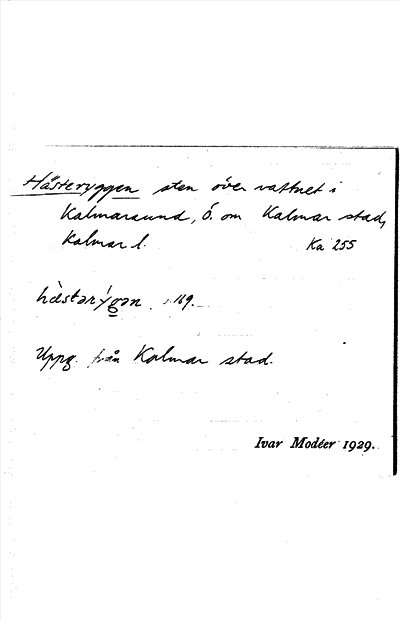 Hästeryggen sten över vattnet i
Kalmarsund, Ö. om Kalmar stad,
Kalmar l. Ka 255
hästərýgən
Uppg. från Kalmar stad.
Ivar Modéer 1929.